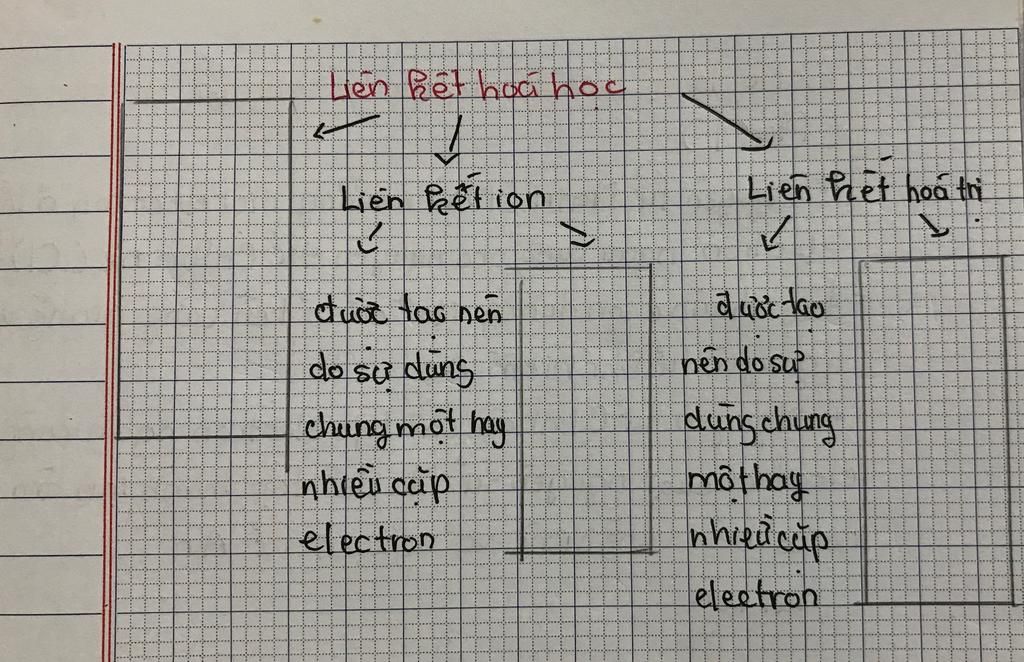 Liên kết hoá học
Liên kết ion
Liên kết hoá trị
được tạo nên
do sự dùng
chung một hay
nhiều cặp
electron
được tạo
nên do sự
dùng chung
một hay
nhiều cặp
electron